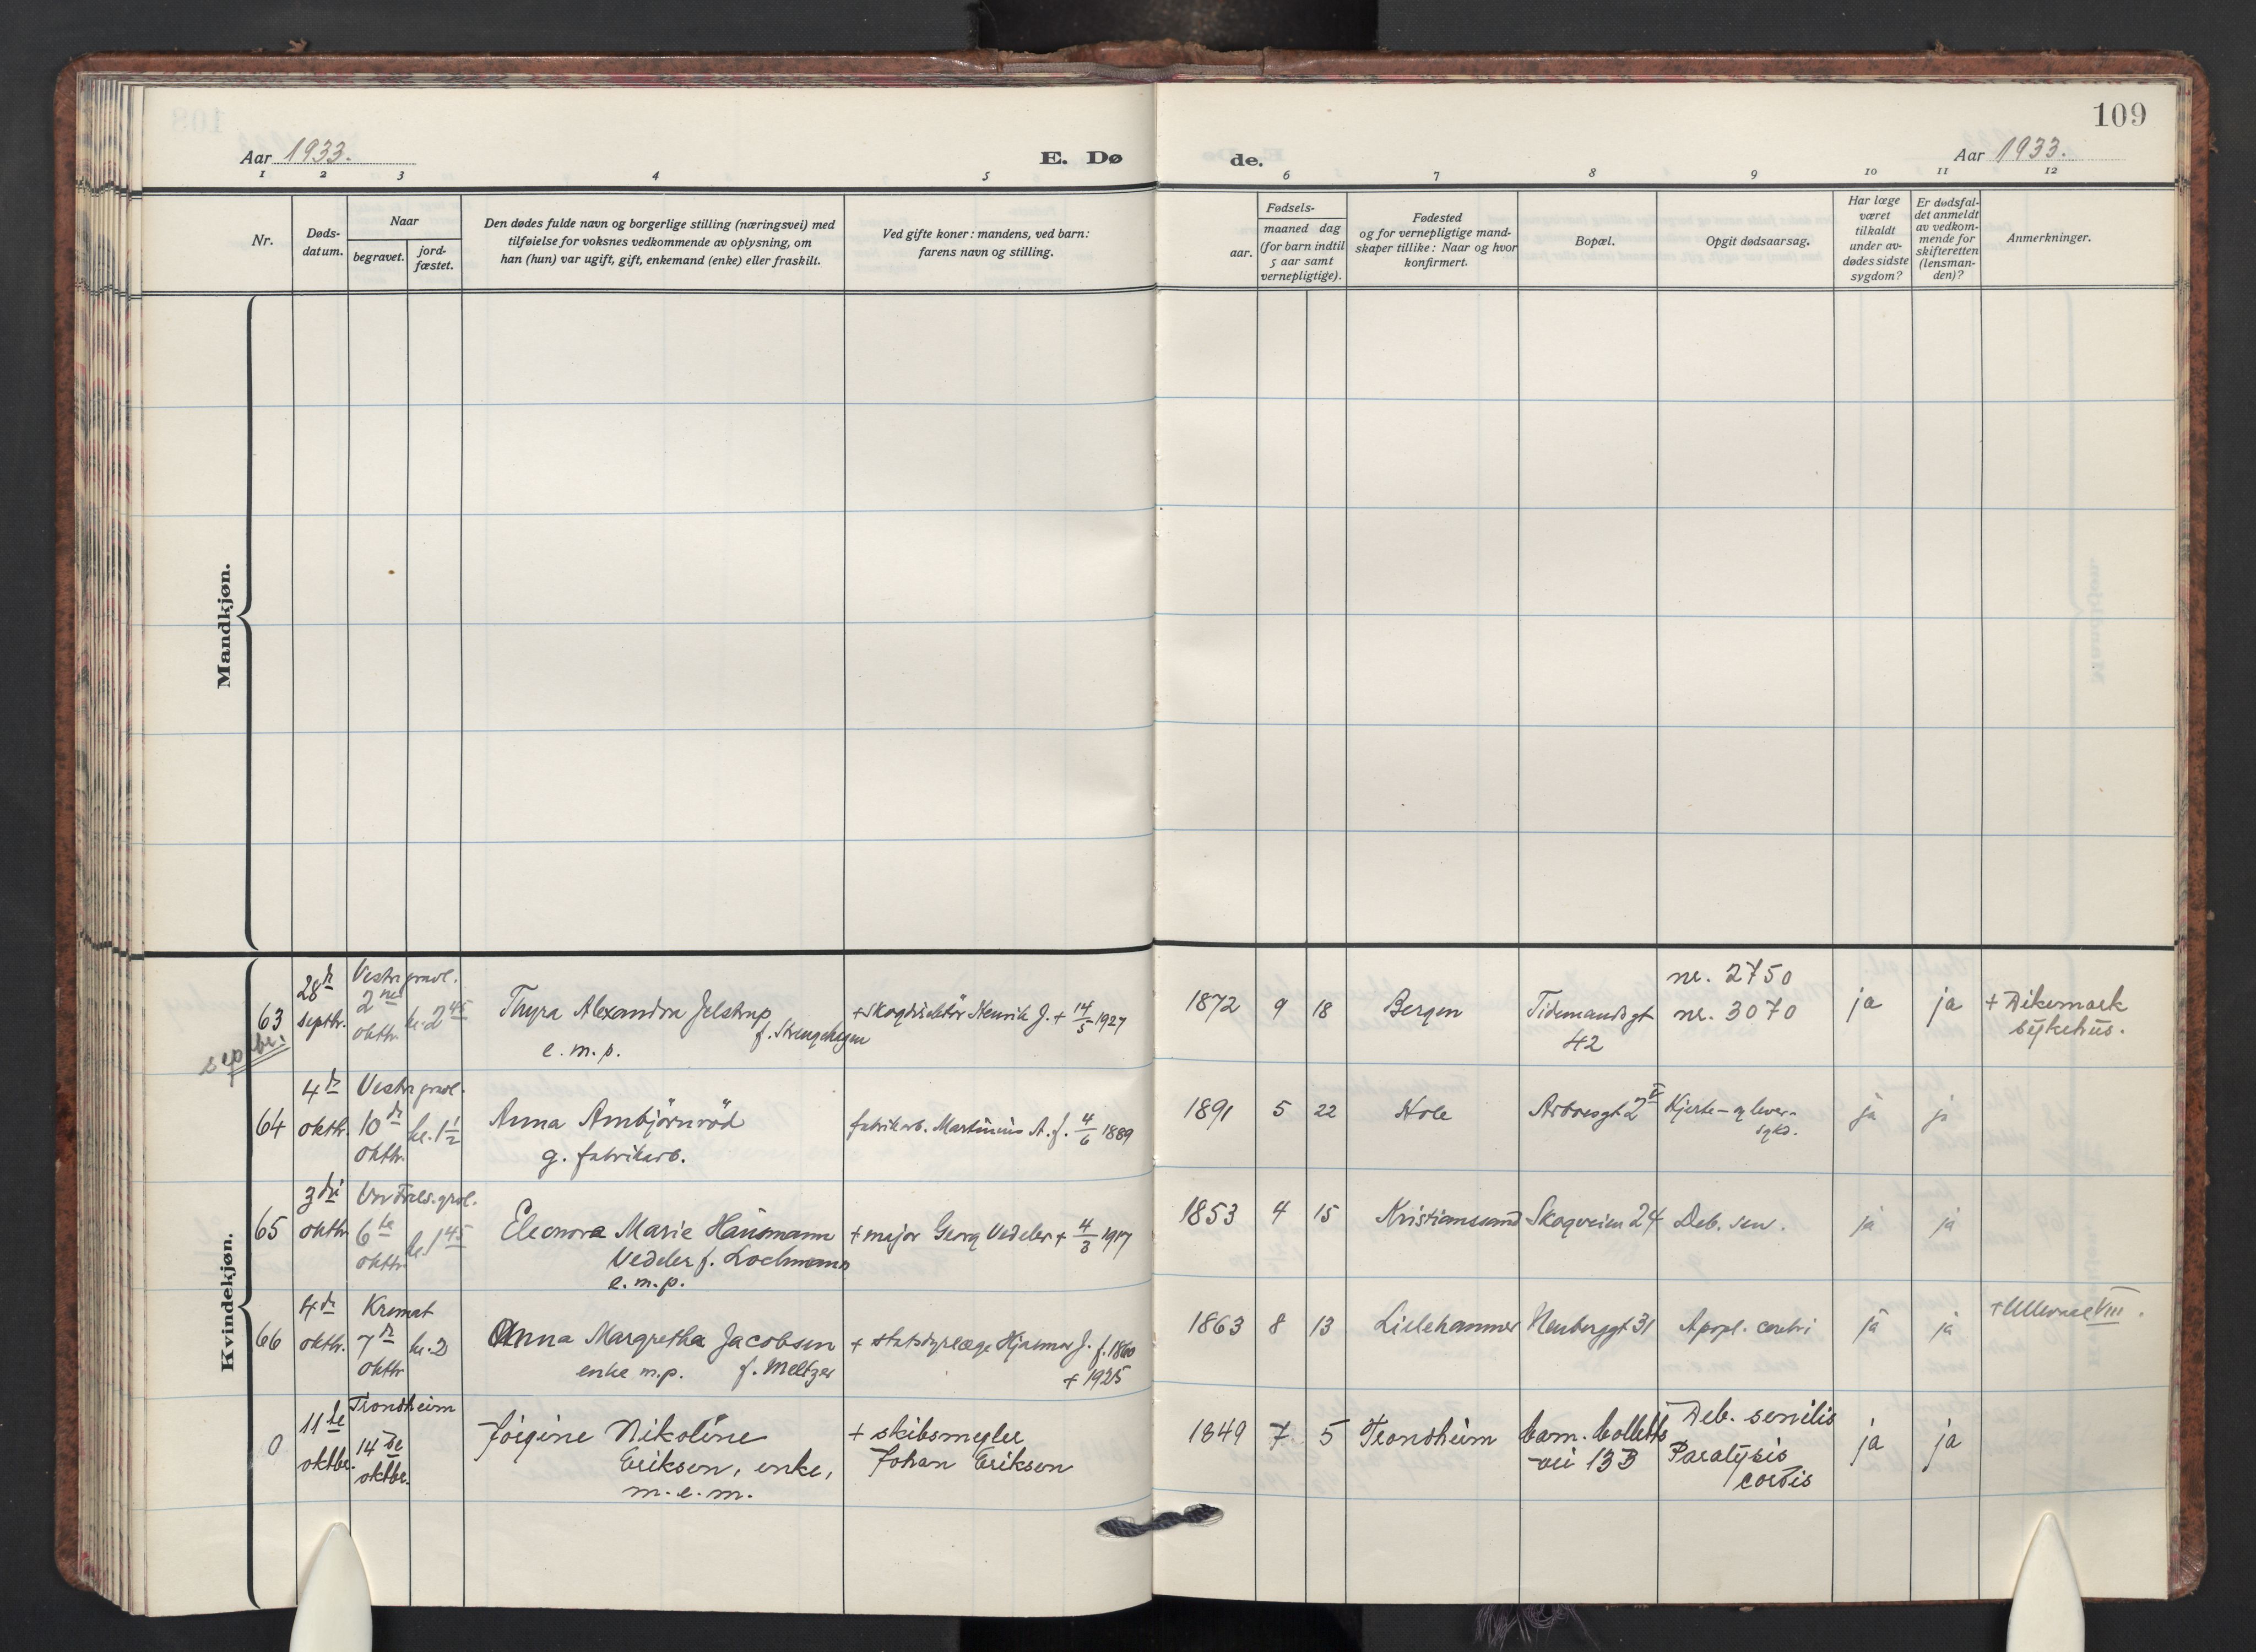 109
Aar 1933.
E. Dø
de.
Aar 1933.
1 2 3 4 5 6 7 8 9 10 11 12
Nr.
Døds-
datum.
Naar
begravet.
jord-
fæstet.
Den dødes fulde navn og borgerlige stilling (næringsvei) med
tilføielse for voksnes vedkommende av oplysning, om
han (hun) var ugift, gift, enkemand (enke) eller fraskilt.
Ved gifte koner: mandens, ved barn:
farens navn og stilling.
Fødsels-
aar.
maaned dag
(for barn indtil
5 aar samt
vernepligtige).
Fødested
og for vernepligtige mand-
skaper tillike: Naar og hvor
konfirmert.
Bopæl.
Opgit dødsaarsag.
Har læge
været
tilkaldt
under av-
dødes sidste
sygdom?
Er dødsfal-
det anmeldt
av vedkom-
mende for
skifteretten
(lensman-
den)?
Anmerkninger.
Mandkjøn.
Kvindekjøn.
63
septbr.
28de
septbr.
Vestre gravl.
2
oktbr.
kl. 2 45
Thyra Alexandra Jelstrup
e. m. p.
+ Henrik J. + 14/5 1927
1872 9 18
Bergen
Tidemandsgt
42
nr. 2750
nr. 3070
ja
ja
+ Dikemark
sykehus.
64
4de
oktbr.
Vestre gravl.
10de
oktbr.
kl. 1 1/2
Anna Ambjörnröd
g. fabrikarb.
fabrikarb. Martinius A. f. 4/6 1889
1891 5 22
Hole
Arbosgt 2
Hjerte- og lever-
sykd.
ja
ja
65
3dje
oktbr.
Vor Frels. gravl.
6te
oktbr.
kl. 1 45
Eleonora Marie Hausmann
Vedeler f. Lochmann
e. m. p.
+ major Georg Vedeler + 4/3 1917
1853 4 15
Kristiansund
Skogveien 24
Deb. sen.
ja
ja
66
4de
oktbr.
Kremat
7de
oktbr
kl. 2
Anna Margretha Jacobsen
enke m.p. f. Meltzer
+ Hjalmar J. f. 1860
+ 1925
1863 8 13
Lillehammer
Neuberggt 31
Apopl. cerebri
ja
ja
+ Ullevaal VIII.
0
11te
oktbr.
Trondheim
14de
oktbr.
Jörgine Nikoline
Eriksen, enke,
m. e. m.
+ skibsmegler
Johan Eriksen
1849 7 5
Trondheim
Cam. Colletts
vei 13B
Deb. senilis
Paralysis
cordis
ja
ja